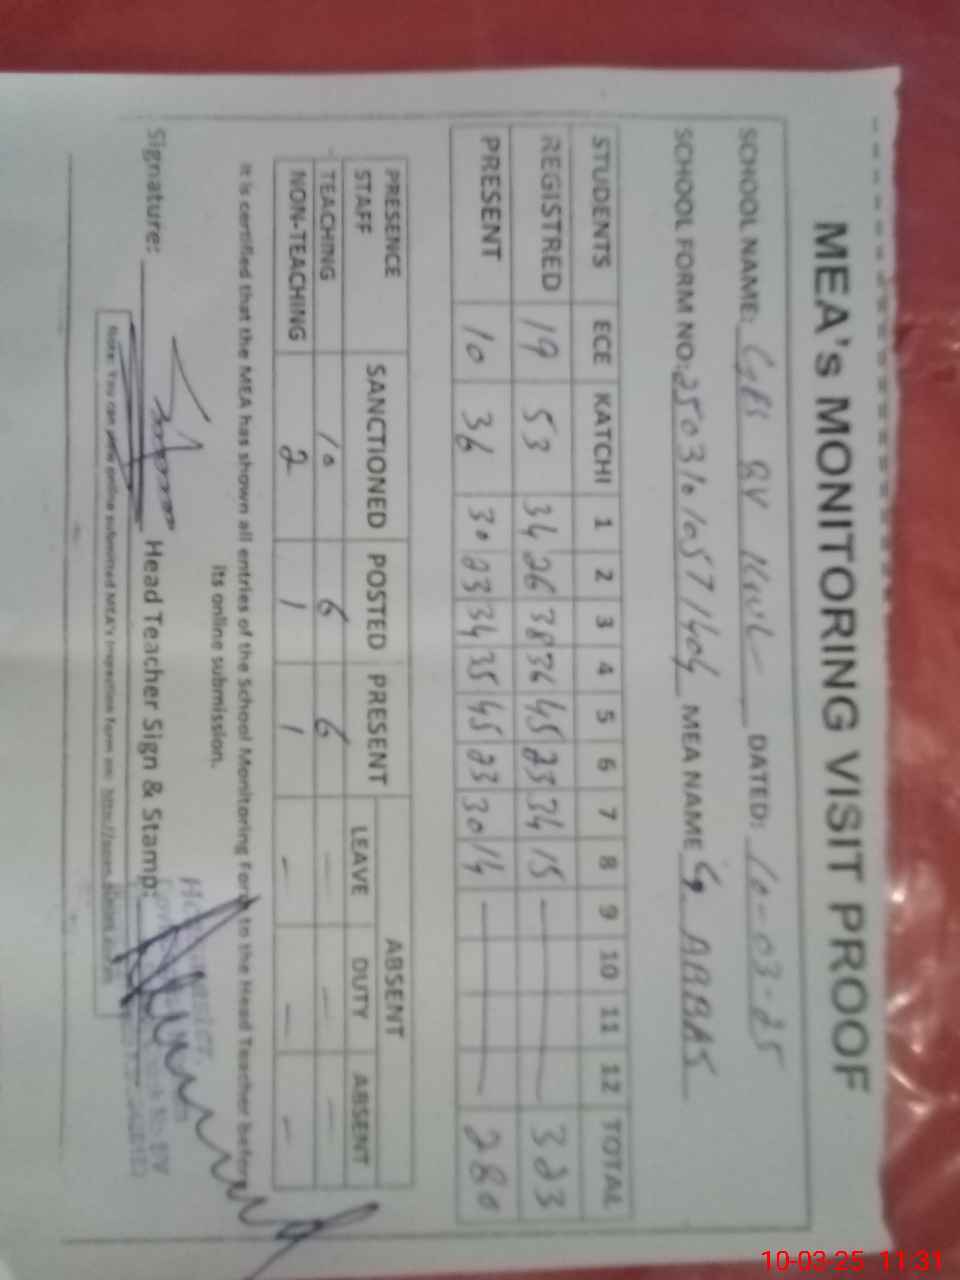 MEA's MONITORING VISIT PROOF
SCHOOL NAME: DATED: 10-03-25
SCHOOL FORM NO: MEA NAME G. ABBAS
STUDENTS ECE KATCHI 1 2 3 4 5 6 7 8 9 10 11 12 TOTAL
REGISTRED 19 53 34 26 38 36 45 23 34 15 — 323
PRESENT 10 36 30 23 34 35 45 23 30 14 — 280
PRESENCE STAFF SANCTIONED POSTED PRESENT ABSENT
LEAVE DUTY ABSENT
TEACHING 10 6 6 — — —
NON-TEACHING 2 1 1 — — —
It is certified that the MEA has shown all entries of the School Monitoring Form to the Head Teacher before
its online submission.
Signature: Head Teacher Sign & Stamp:
Note: You can view online submitted MEA's inspection form on:
10-03-25 11:31